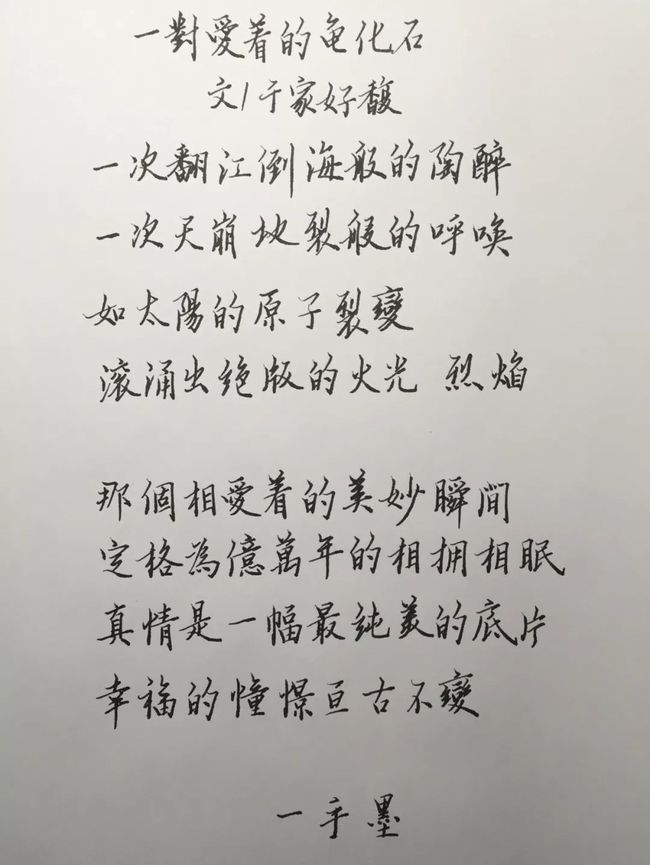 一對愛着的龟化石
文/于家好馥
一次翻江倒海般的陶醉
一次天崩地裂般的呼唤
如太陽的原子裂變
滚涌出绝版的火光 烈焰
那個相愛着的美妙瞬间
定格為億萬年的相拥相眠
真情是一幅最純美的底片
幸福的憧憬亘古不變
一手墨